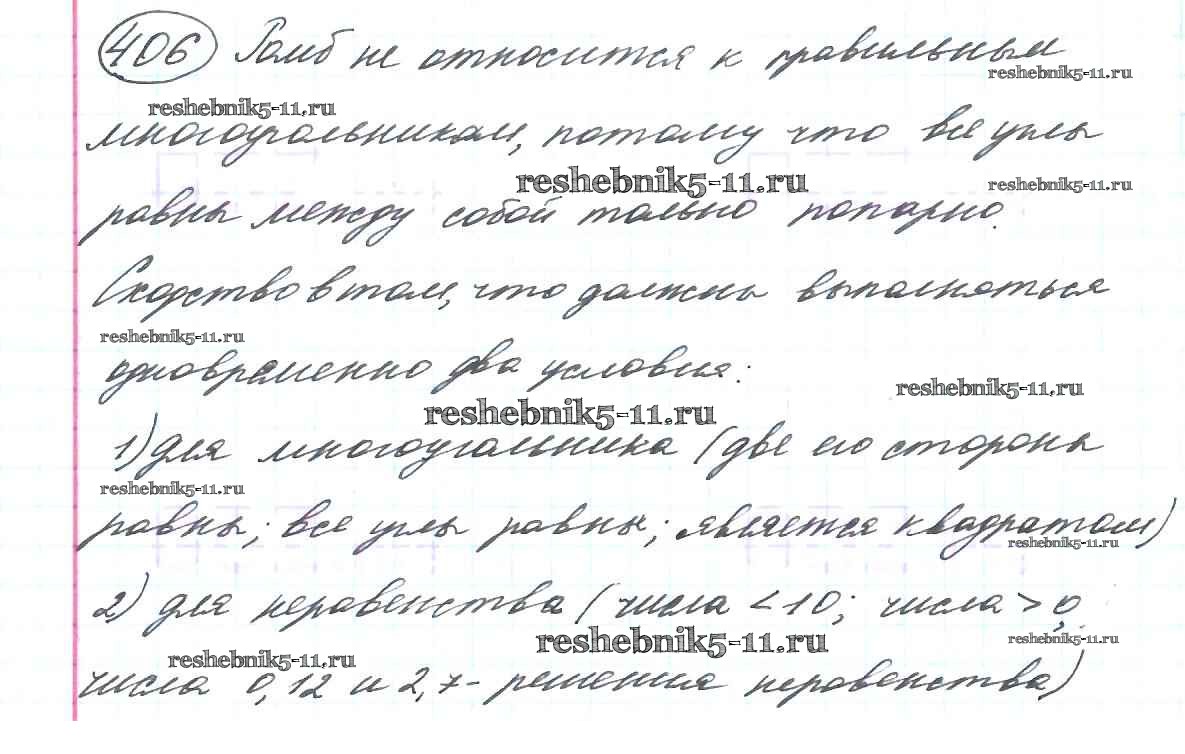 406 Ромб не относится к правильным
reshebnik5-11.ru
reshebnik5-11.ru
многоугольникам, потому что все углы
reshebnik5-11.ru
reshebnik5-11.ru
равны между собой только попарно.
Сходство в том, что должны выполняться
reshebnik5-11.ru
одновременно два условия:
reshebnik5-11.ru
reshebnik5-11.ru
1) для многоугольника (две его стороны
reshebnik5-11.ru
равны; все углы равны; является квадратом)
reshebnik5-11.ru
2) для неравенства (числа < 10; числа > 0
reshebnik5-11.ru
reshebnik5-11.ru
reshebnik5-11.ru
числа 0,12 и 2,7 - решения неравенства)